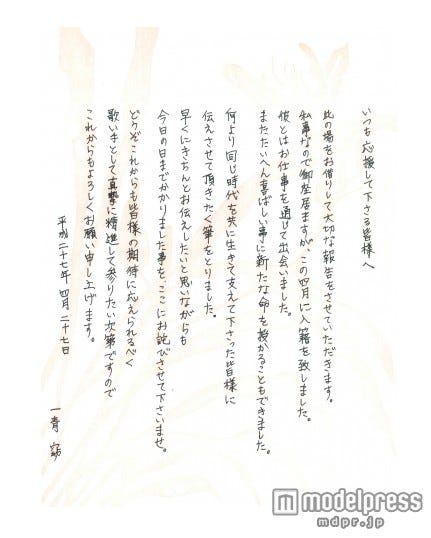 いつも応援して下さる皆様へ
此の場をお借りして大切な報告をさせていただきます。
私事なので御座居ますが、この四月に入籍を致しました。
彼とはお仕事を通じて出会いました。
またたいへん喜ばしい事に新たな命を授かることもできました。
何より同じ時代を共に生きて支えて下さった皆様に
伝えさせて頂きたく筆をとりました。
早くにきちんとお伝えしたいと思いながらも
今日の日までかかりました事を、ここにお詫びさせて下さいませ。
どうぞこれからも皆様の期待に応えられるべく
歌い手として真摯に精進して参りたい次第ですので
これからもよろしくお願い申し上げます。
平成二十七年 四月 二十七日
一青 窈
modelpress
mdpr.jp